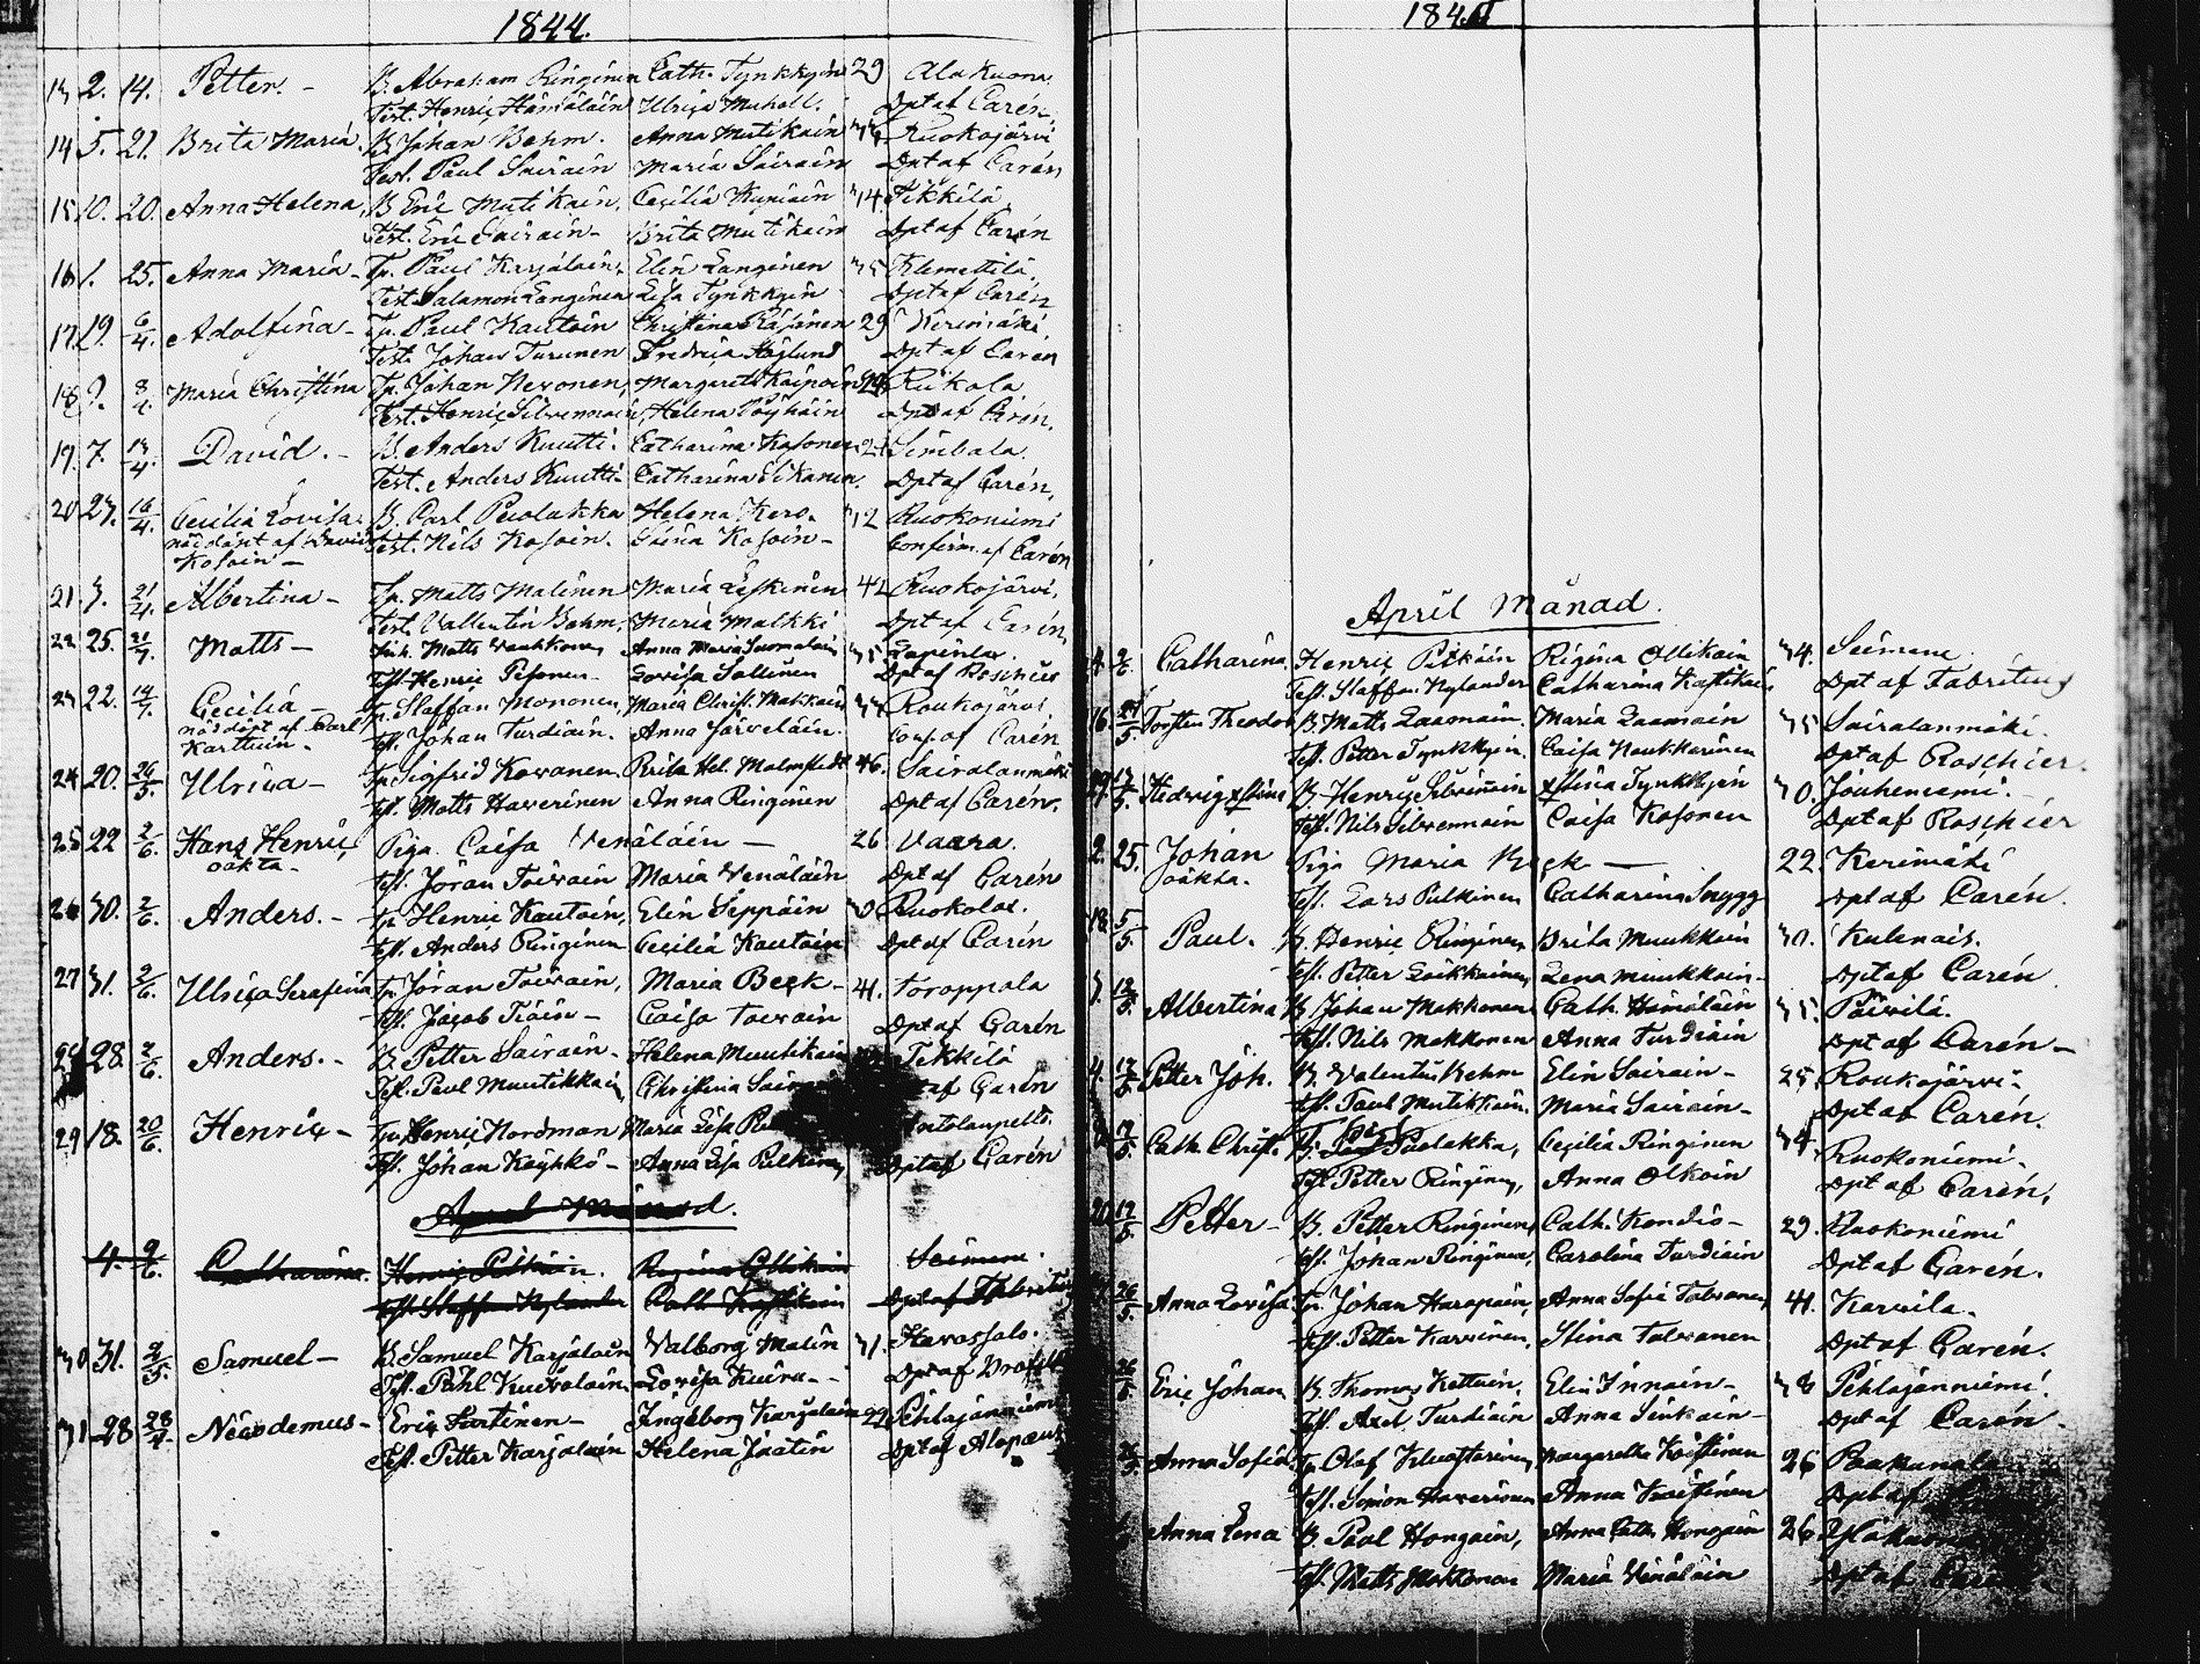 1844.
13 2. 14. Petter. - B. Abraham Ringinen Cath. Tynkkyin 29 Alakuona.
Test. Henric Hämäläin Ulrica Muholl. Dpt af Carén.
14 5. 21. Brita Maria. B. Johan Behm. Anna Mutikain Ruokojärvi
Test. Paul Sairain Maria Sairain Dpt af Carén
15 10. 20. Anna Helena, B Eric Mutikain. Cecilia Kyniäin 34. Tikkilä.
Test. Eric Sairain - Brita Mutikain Dpt af Carén
16 1. 25. Anna Maria - Tp. Paul Karjalain. Elin Langinen 35 Klemettilä.
Test. Salamon Langinen Lisa Tynkkyin Dpt af Carén
17. 19. 6/4. Adolfina - Tp. Paul Kautoin Christina Räsänen 29 Kerimäki.
Test. Johan Turunen Fredrica Höglund Dpt af Carén
18 9. 8/4. Maria Christina Tp. Johan Nevonen, Margareta Kaipain Riikola
Test. Henric Silvennoin, Helena Pöyhöin Dpt af Carén.
19. 7. 13/4. David. - B. Anders Kuutti. Catharina Kosonen 21 Simbala.
Test. Anders Kuutti - Catharina Dpt af Carén.
20 27. 16/4. Cecilia Lovisa B. Carl Puolakka Helena Kero. 32 Ruokoniemi
nöddöpt af David Test. Nils Kosoin. Stina Kosoin - Confirm. af Carén
Kosoin -
21. 3. 21/4. Albertina - Tp. Matts Malinen Maria Leskinen 42 Ruokojärvi.
Test. Vallentin Behm. Maria Malkki Dpt af Carén.
22 25. 21/7. Matts - Matts Vauhkonen Anna Maria Suomalain 35
Test. Henric Pesonen - Lovisa Sallinen Dpt af Roschier
23 22. 14/7. Cecilia - Tp. Staffan Mononen, Maria Christ. Makkoin 33 Roukojärvi
nöddöpt af Carl Test. Johan Turdiain. Anna Järveläin. Conf. af Carén
Karttuin -
24 20. 26/5. Ulrica - Tp Sigfrid Kovanen. Brita Hel. Malmstedt 46. Sairalanmäki
Test. Matts Haverinen Anna Ringinen Dpt af Carén.
25 22 2/6. Hans Henric, Piga Caisa Venäläin - 26 Vaara.
oäkta - Test. Jöran Toivain Maria Venäläin Dpt af Carén
26 30. 2/6. Anders. - Tp. Henric Kautoin, Elin Seppäin 30 Ruokolax.
Test. Anders Ringinen Cecilia Kautoin Dpt af Carén
27 31. 2/6. Ulrica Serafina Tp. Jöran Toivain, Maria Beck - 41. Toroppala
Test. Jacob Tiäin - Caisa Toivain Dpt af Carén
28 28. 2/6. Anders. - B. Petter Sairain - Helena Muutikain Tikkilä
Test. Paul Muutikkain Christina af Carén
29 18. 20/6. Henric - Tp. Henric Nordman Maria Lisa
Test. Johan Käyhkö - Anna Lisa Pulkinen Dpt af Carén
April Månad.
4. 9/6. Catharina. Henric Pitkäin. Regina Ollikain Seimene.
Test. Staffan Nylander Cath. Kostikain Dpt af Fabritius
30 31. 2/5. Samuel - B. Samuel Karjalain Valborg Malin 31. Havassalo.
Test. Påhl Kuivalain. Lovisa Kuiru - Dpt af
31 28 28/4. Nicodemus - Eric Partinen - Ingeborg Karjalain 29 Pihlajaniemi
Test. Petter Karjalain Helena Jäätin Dpt af Alopæus
184
April Månad.
4. 9/6. Catharina Henric Pitkäin Regina Ollikain 34. Seimene.
Test. Staffan Nylander Catharina Kostikain Dpt af Fabritius
16. 5. Torsten Theodor B. Matts Laamain. Maria Laamain 35 Sairalanmäki.
Test. Petter Tynkkyin. Caisa Naukkarinen Dpt af Roschier.
29. 12/5. Hedvig Stina B. Henric Silvennoin Stina Tynkkyin 30. Jouheniemi.
Test. Nils Silvennoin Caisa Kosonen Dpt af Roschier
2. 25. Johan Piga Maria Beck - 22. Kerimäki
oäkta. Test. Lars Pulkinen Catharina Snygg Dpt af Carén.
18 5/5. Paul. B. Henric Ringinen Brita Muukkoin 30. Kulenais.
Test. Petter Laikkainen Lena Muukkoin - Dpt af Carén
3. 12/5. Albertina B. Johan Makkonen Cath. Hämäläin 35. Päivilä.
Test. Nils Makkonen Anna Turdiain Dpt af Carén -
4. 12/5. Petter Joh. B. Valentin Behm Elin Sairain - 25. Roukojärvi -
Test. Paul Mutikkain. Maria Sairain - Dpt af Carén.
12/5. Cath. Christ. Puolakka, Cecilia Ringinen 34. Ruokoniemi.
Test. Petter Ringinen, Anna Olkoin Dpt af Carén.
20 12/5. Petter - B. Petter Ringinen, Cath. Kondio - 29. Ruokoniemi
Test. Johan Ringinen, Carolina Turdiain Dpt af Carén.
26/5. Anna Lovisa Tp. Johan Harapain, Anna Sofia Talvanen 41. Karvila.
Test. Petter Karvinen. Stina Talvanen Dpt af Carén.
26/5. Eric Johan B. Thomas Kettuin. Elin Innain - 38 Pihlajaniemi.
Test. Axel Turdiain Anna Sinkoin - Dpt af Carén -
26/5. Anna Sofia. Tp. Olof Margaretha 26 Paakunala
Test. Simon Haverinen Anna Dpt af
Anna Lena B. Paul Hongain, Anna Cath. Hongain 26
Test. Matts Makkonen Maria Venäläin Dpt af